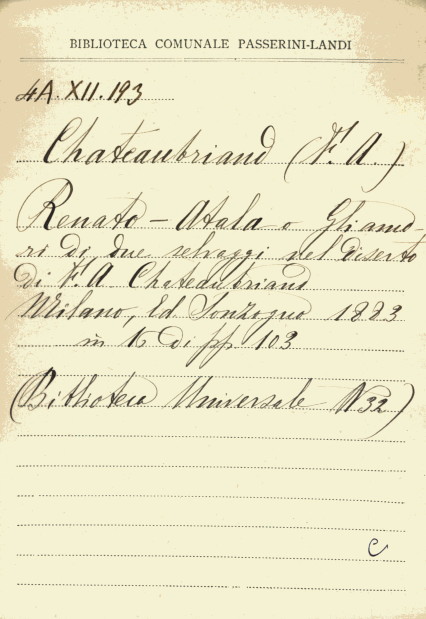 BIBLIOTECA COMUNALE PASSERINI-LANDI
4A.XII.193
Chateaubriand (F. A.)
Renato - Atala o Gli amo-
ri di due selvaggi nel deserto
di F. A Chateaubriand
Milano, Ed Sonzogno 1883
in 16 di pp 103
(Biblioteca Universale N 32)
C